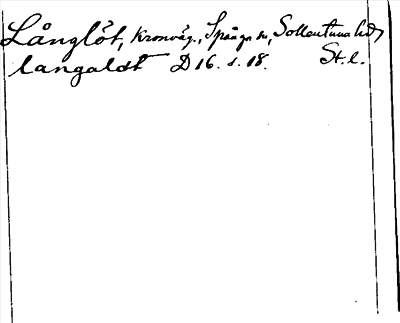 Långlöt, Kronväg., Spånga sn, Sollentuna hd,
langaldt D 16. s. 18. St. l.